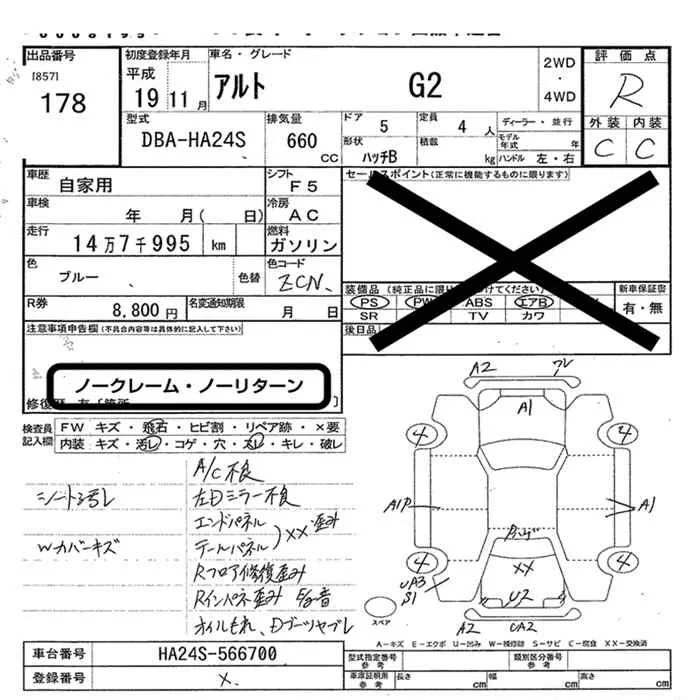 出品番号
[857]
178
初度登録年月
平成
19 11 月
車名・グレード
アルト G2
2WD
・
4WD
評価点
R
外装 内装
C C
型式
DBA-HA24S
排気量
660
CC
ドア 5
定員 4 人
ディーラー・並行
モデル年式 年
形状 ハッチB
積載 kg
ハンドル 左・右
車歴
自家用
シフト
F5
セールスポイント(正常に機能するものに限ります)
車検
年 月( 日)
冷房
AC
走行
14万7千995 km
燃料
ガソリン
色
ブルー
色替
色コード
ZCN
装備品(純正品に限り
てください)
新車保証書
PS PW ABS エアB
有・無
SR TV カワ
後日品
R券
8,800円
名変通知期限
月 日
注意事項申告欄(不具合内容等は具体的に記入して下さい)
ノークレーム・ノーリターン
検査員
記入欄
FW キズ・飛石・ヒビ割・リペア跡・×要
内装 キズ・汚レ・コゲ・穴・スレ・キレ・破レ
A/C不良
シート汚レ
左Dミラー不良
エンドパネル
テールパネル
XX 歪み
Wカバーキズ
Rフロア修復歪み
Rインパネ歪み
オイルもれ、Dブーツヤブレ
A2
A1
4
4
A1P
A1
XX
4
4
UA3
S1
U2
A2
UA2
スペア
A-キズ E-エクボ U-凹み W-補修跡 S-サビ C-腐食 XX-交換済
車台番号
HA24S-566700
型式指定番号
参考
類別区分番号
参考
登録番号
×
車庫証明用
参考
長さ cm
幅 cm
高さ cm